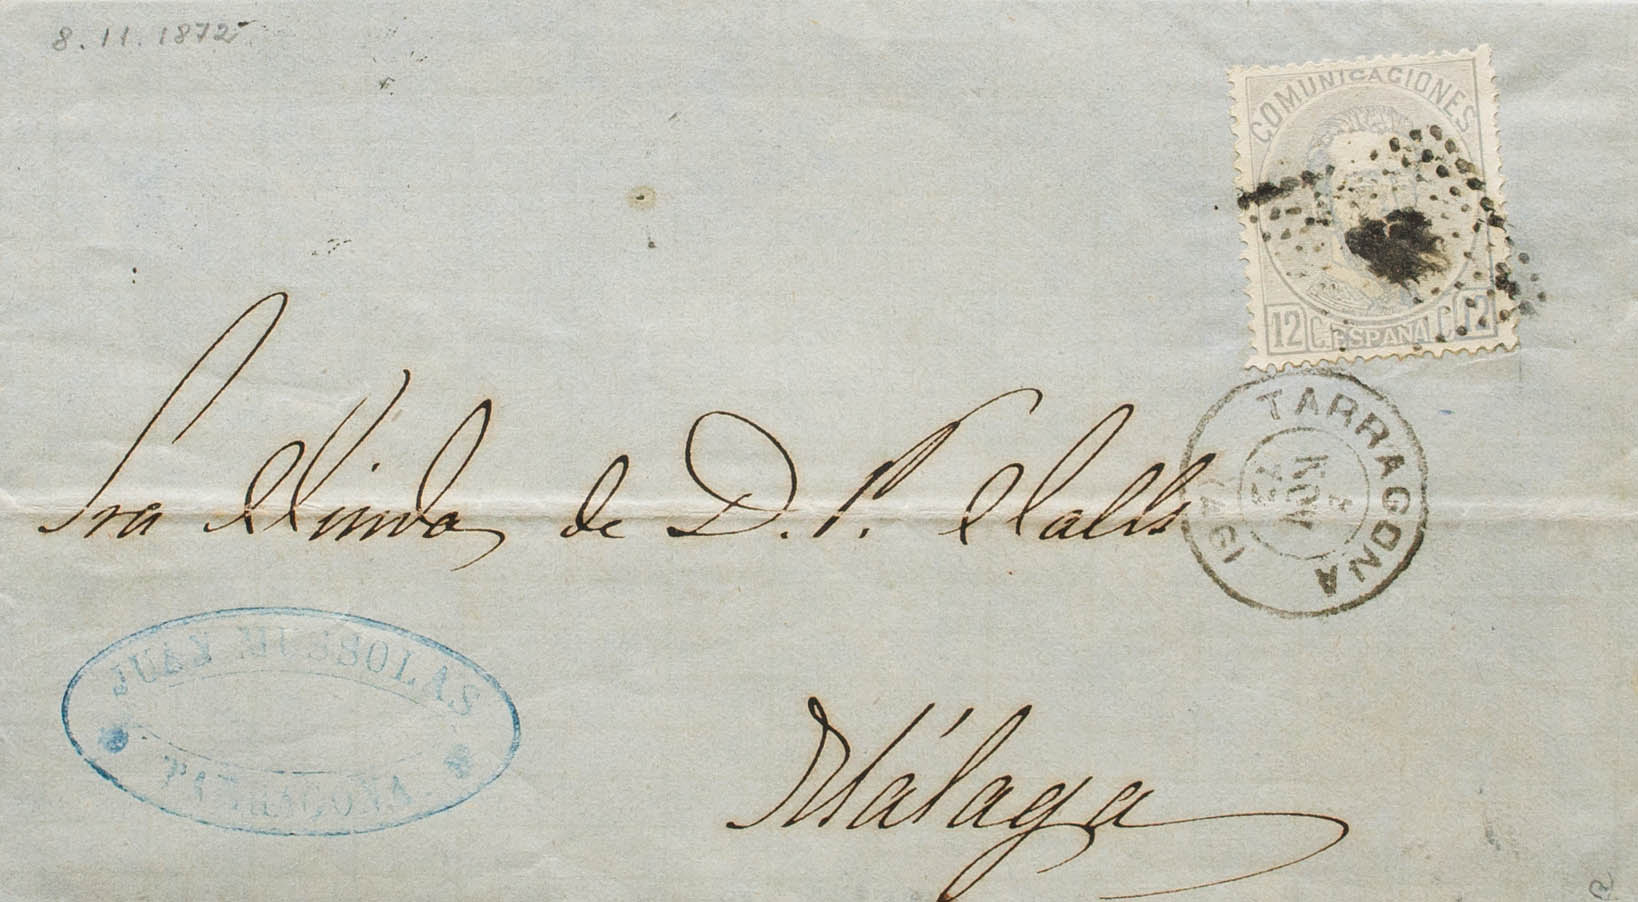 8.11.1872
COMUNICACIONES
12 C. ESPAÑA C. 12
TARRAGONA
8
NOV
72
(19)
Sra Viuda de D. P. Valls
JUAN MUSSOLAS
TARRAGONA
Málaga